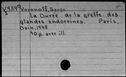 Voronoff, Serge
La Durée de la greffe des
glandes endocrines. Paris,
Doin, 1939
40 p. avec ill.